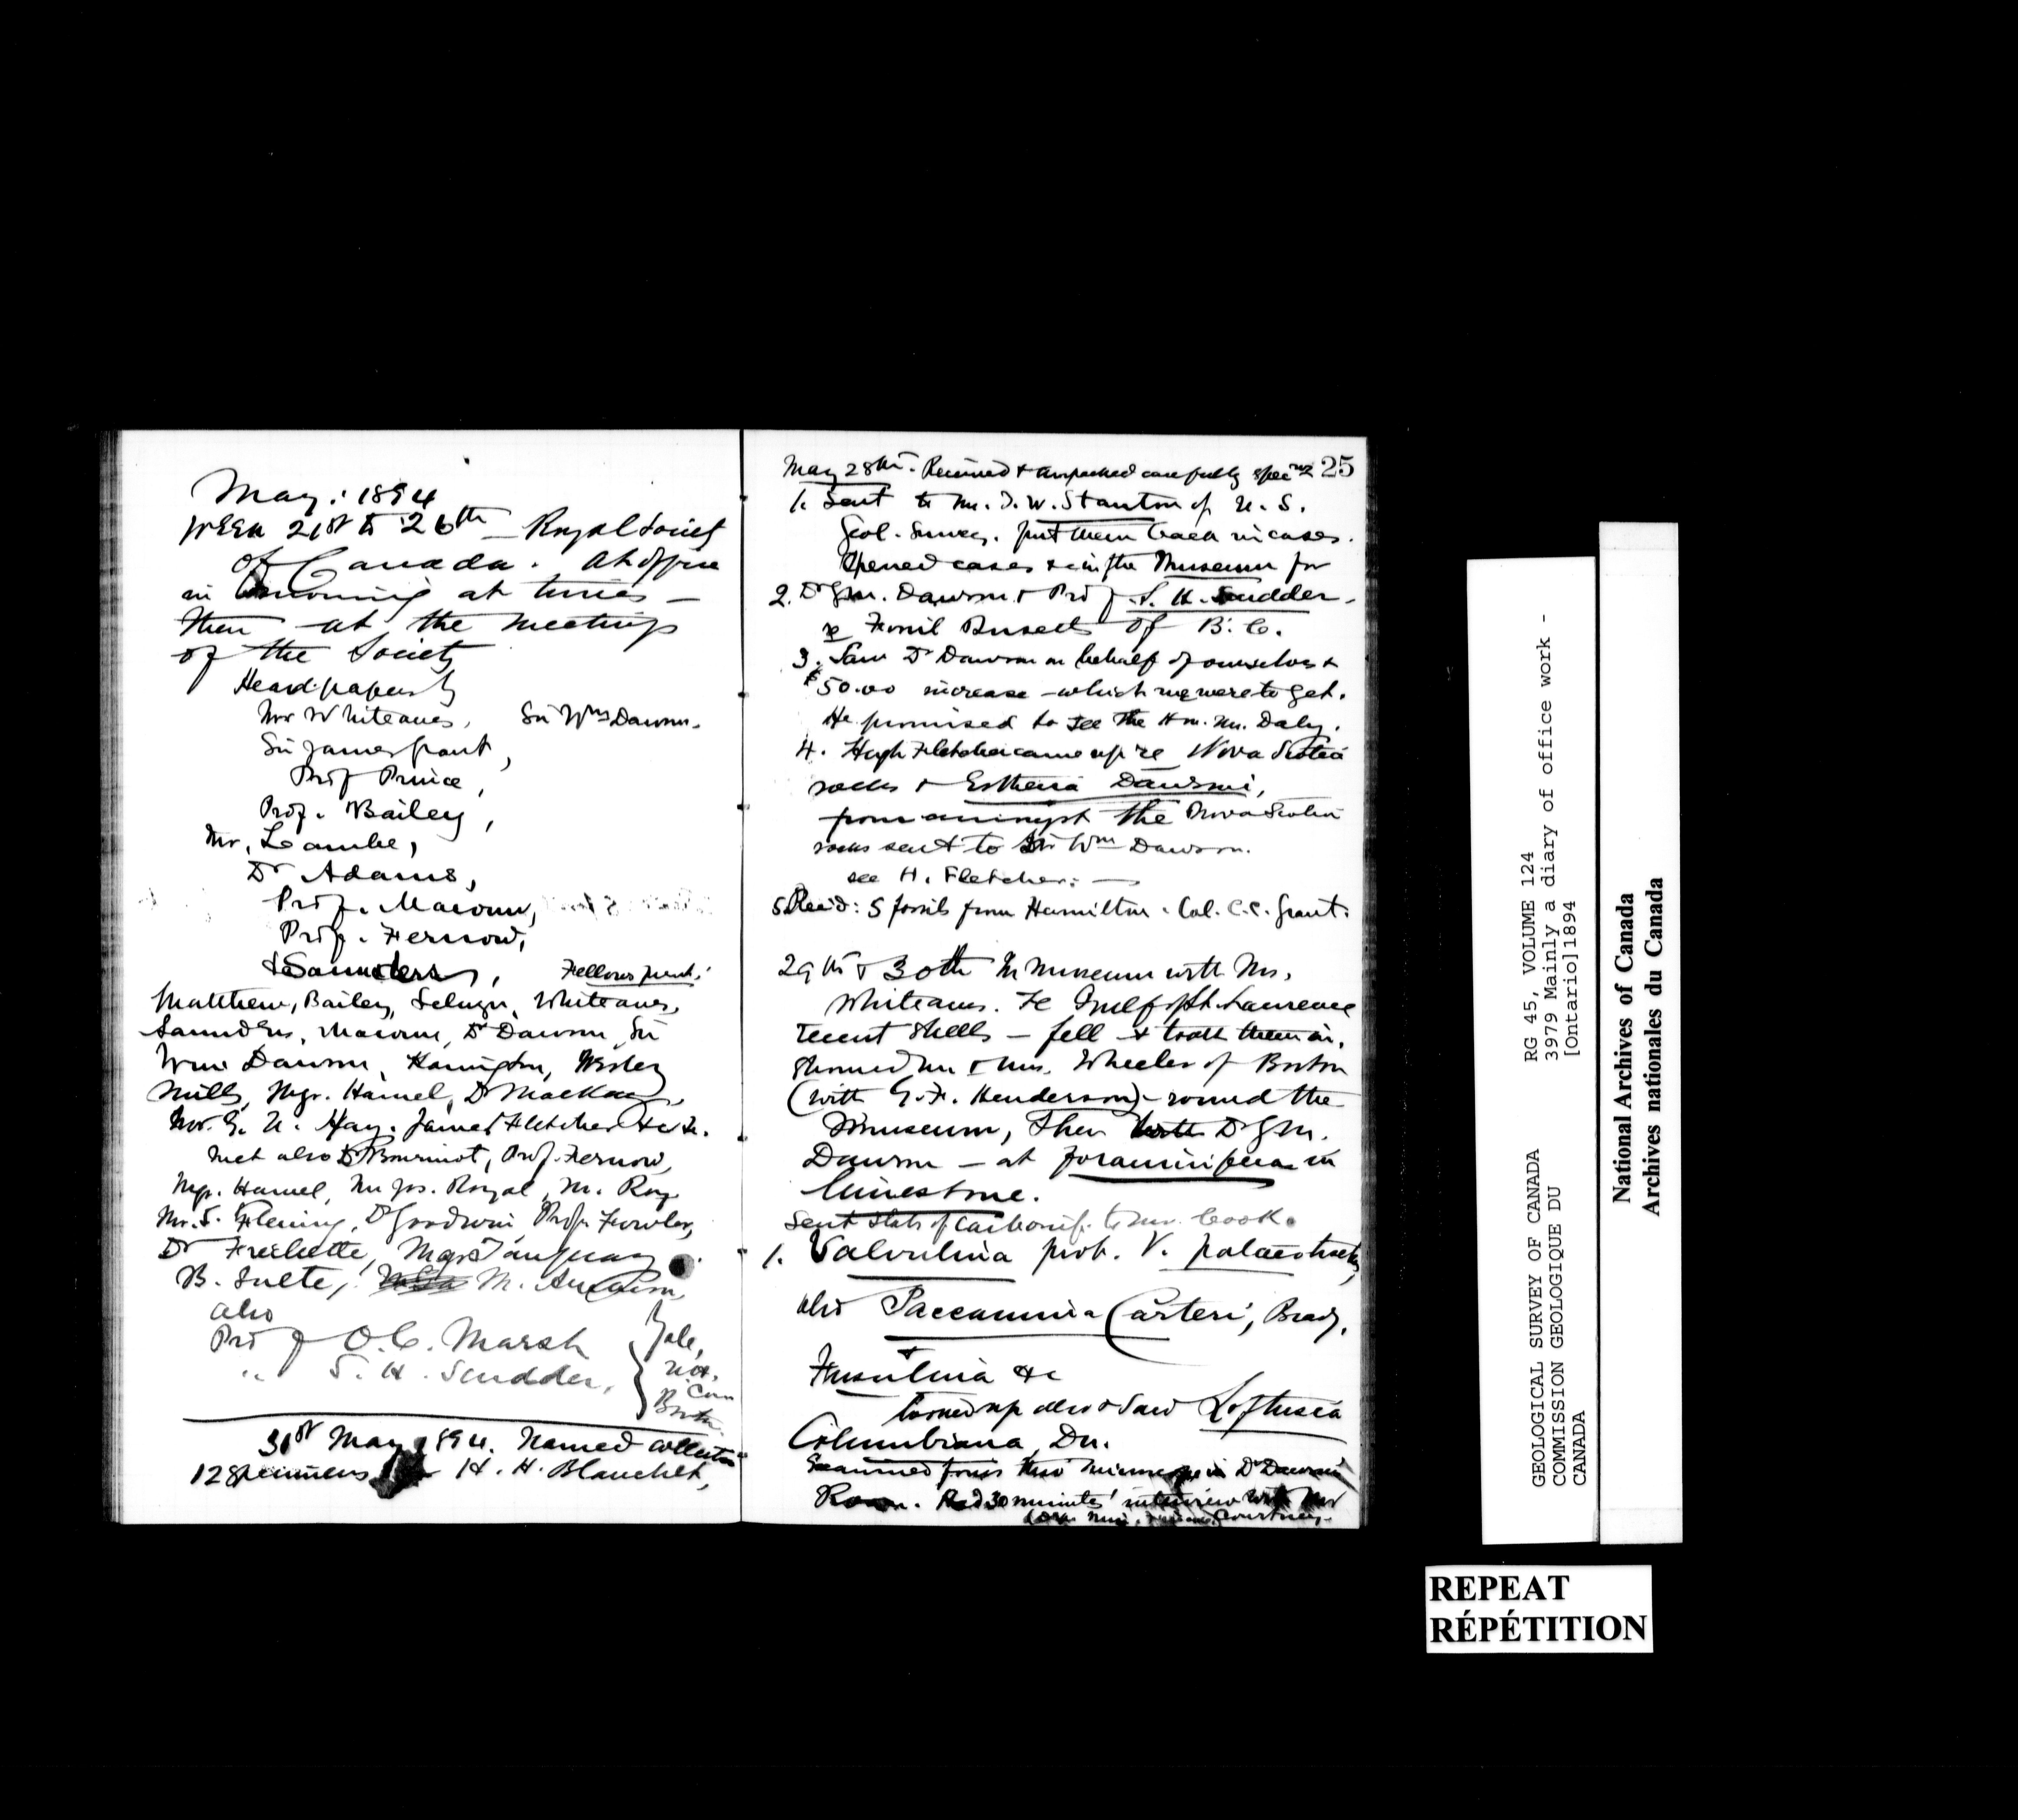 May: 1894
Week 21st to 26th — Royal Society
of Canada. At office
in morning at times —
then at the meetings
of the Society
Heard papers by
Mr Whiteaves, Sir Wm Dawson.
Sir James Grant,
Prof Prince,
Prof. Bailey,
Mr. Lambe,
Dr Adams,
Prof. Macoun,
Prof. Fernow,
& Saunders, Fellows pres't:
Matthew, Bailey, Selwyn, Whiteaves,
Saunders, Macoun, Dr Dawson, Sir
Wm Dawson, Harrington, Wesley
Mills, Mgr. Hamel, Dr MacKay,
Mr. G. U. Hay. James Fletcher &c &.
Met also Dr Bourinot, Prof. Fernow,
Mgr. Hamel, Mr Jos. Royal, M. Roy
Mr. S. Fleming, Dr Goodwin, Prof. Fowler,
Dr Frechette, Mgr Tanguay
B. Sulte, M.
also
Prof O. C. Marsh } Yale,
" S. H. Scudder, Boston
31st May 1894. Named collection
12 specimens H. H. Blanchet,
May 28th. Received & unpacked carefully spec'ns 25
1. sent to Mr. T. W. Stanton of U. S.
Geol. Survey. put them back in cases.
Opened cases in the Museum for
2. Dr G.M. Dawson & Prof. S. H. Scudder —
re Fossil Insects of B. C.
3. Saw Dr Dawson on behalf of ourselves &
$50.00 increase — which we were to get.
He promised to see the Hon. Mr. Daly.
4. Hugh Fletcher came up re Nova Scotia
rocks & Estheria Dawsoni,
from amongst the Nova Scotia
rocks sent to Sir Wm Dawson.
see H. Fletcher: —
5. Rec'd: 5 fossils from Hamilton. Col. C. C. Grant.
29th & 30th In Museum with Mr.
Whiteaves. re Gulf of St. Lawrence
recent shells — fell & took them in.
Showed Mr & Mrs. Wheeler of Boston
(with G. F. Henderson) — round the
Museum, Then with Dr G M.
Dawson — at foraminifera in
limestone.
Sent slab of Carbonif. to Mr. Cook.
1. Valvulina prob. V. palaeotrochus,
also Saccamina Carteri, Brady,
+
Fusulina &c
turned up also & saw Loftusia
Columbiana, Dn.
Examined forms thro' microscope in Dr Dawson's
Room. Had 30 minutes' interview with Mr
Courtney.
GEOLOGICAL SURVEY OF CANADA RG 45, VOLUME 124
COMMISSION GEOLOGIQUE DU 3979 Mainly a diary of office work -
CANADA [Ontario]1894
National Archives of Canada
Archives nationales du Canada
REPEAT
RÉPÉTITION